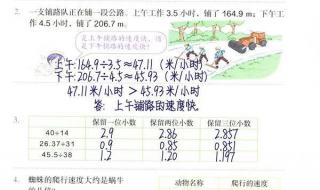 2. 一支铺路队正在铺一段公路。上午工作3.5小时，铺了164.9m；下午工
作4.5小时，铺了206.7m。
是上午铺路的速度快，还是下午铺路的速度快？
上午:164.9÷3.5≈47.11（米/小时）
下午:206.7÷4.5≈45.93（米/小时）
47.11米/小时 > 45.93米/小时
答：上午铺路的速度快。
3.
保留一位小数 保留两位小数 保留三位小数
40÷14 2.9 2.86 2.857
26.37÷31 0.9 0.85 0.851
45.5÷38 1.2 1.20 1.197
4. 蜘蛛的爬行速度大约是蜗牛
动物名称 爬行的速度